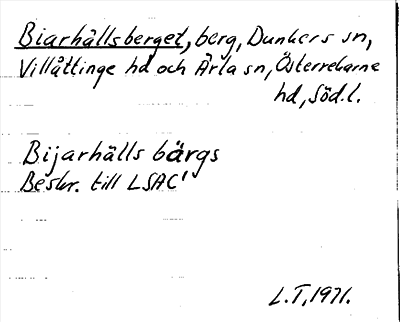 Biarhällsberget, berg, Dunkers sn,
Villåttinge hd och Ärla sn, Österrekarne
hd, Söd.l.
Bijarhälls bärgs
Beskr. till LSAC'
L.T, 1971.